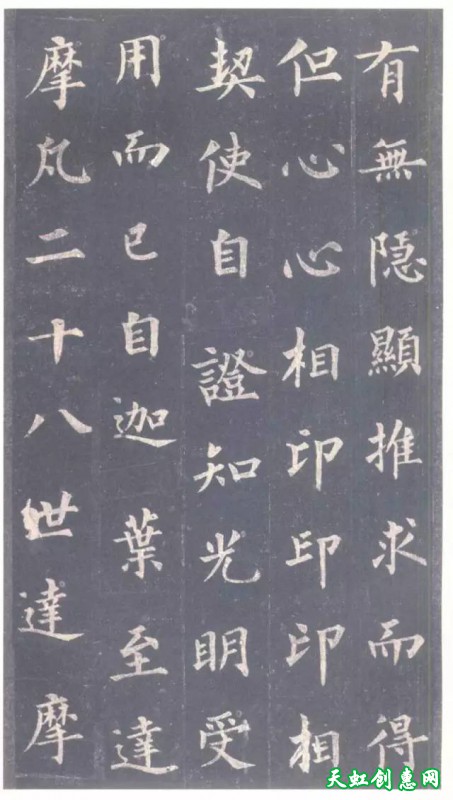 有無隱顯推求而得
但心心相印印印相
契使自證知光明受
用而已自迦葉至達
摩凡二十八世達摩
天虹创惠网